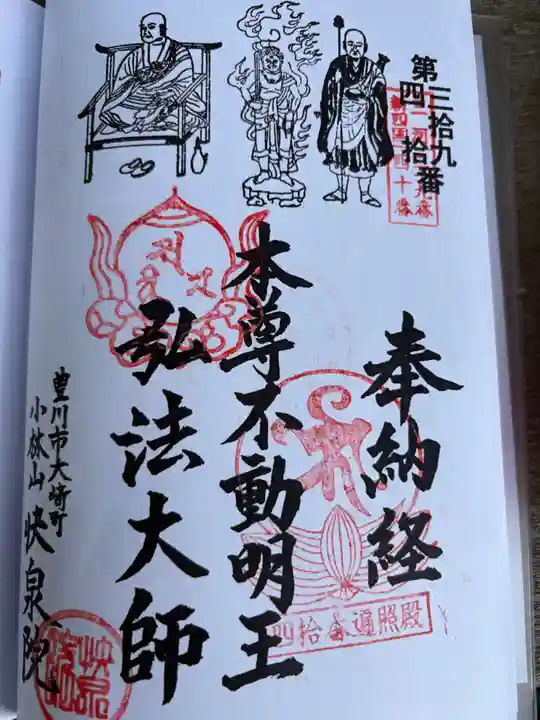 第三拾九
四拾番
奉納経
本尊不動明王
弘法大師
豊川市大崎町
小林山快泉院
遍照殿